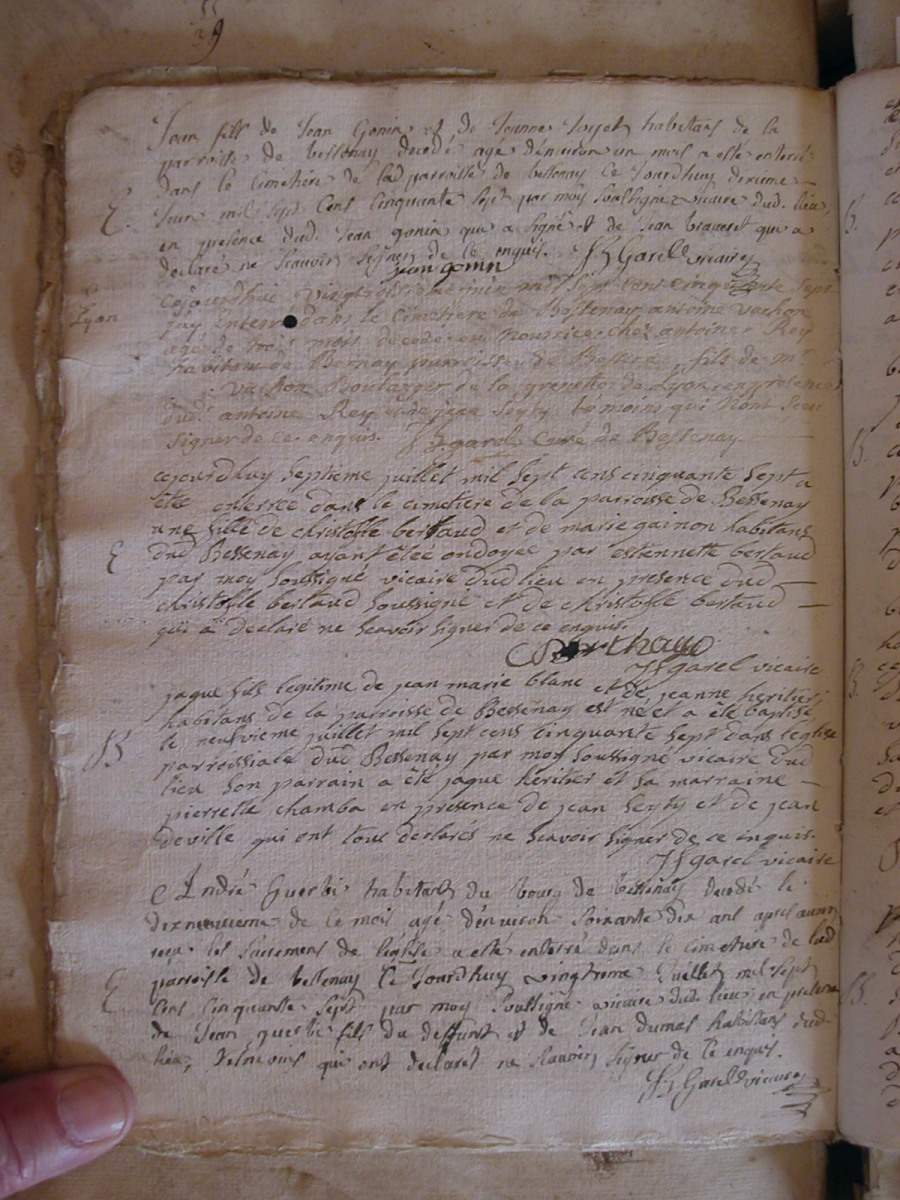 39
Jean fils de Jean Gonin et de Jeanne habitans de la
parroisse de bessenay decedé agé denviron un mois a esté enterré
dans le cimetiére de lad parroisse de bessenay ce Jourdhuy dixieme
E. Juin mil sept cens cinquante sept par moy soussigné vicaire dud. lieu,
en presence dud. Jean gonin qui a signé et de Jean qui a
declaré ne scavoir signer de ce enquis. JB Garel vicaire
jean gonin
cejourdhui vingt juin mil sept cent cinquante sept
Lyon jay enterré dans le cimetiere de Bessenay antoine vachon
agé de trois mois decedé en nourrice chez antoine Rey
habitant de Bernay parroisse de fils de mr
vachon Boulanger de la grenette de Lyon en presence
dud. antoine Rey et de jean Seyty témoins qui n'ont sceu
signer de ce enquis. garel curé de Bessenay
cejourdhuy septieme juillet mil sept cens cinquante sept a
été enterrée dans le cimetiere de la parroisse de Bessenay
une fille de christofle bertaud et de marie gainon habitans
E dud Bessenay ayant étéé ondoyée par estiennette bertaud
par moy soussigné vicaire dud lieu en presence dud
christofle bertaud soussigné et de christofle bertaud
qui a declaré ne scavoir signer de ce enquis.
Berthaud
JB garel vicaire
jaque fils legitime de jean marie blanc et de jeanne heritier
habitans de la parroisse de Bessenay est né et a été baptisé
le neufvieme juillet mil sept cens cinquante sept dans leglise
B parroissiale dud Bessenay par moy soussigné vicaire dud
lieu son parrain a été jaque heritier et sa marraine
pierrette chamba en presence de jean Seyty et de jean
deville qui ont tous declarés ne scavoir signer de ce enquis.
JB garel vicaire
André Guerbi habitant du bourg de bessenay decedé le
dixneuvieme de ce mois agé denviron soixante dix ans apres avoir
reçu les sacremens de léglise a esté enterré dans le cimetiere de lad
E parroisse de bessenay ce Jourdhuy vingtieme Juillet mil sept
cens cinquante sept par moy soussigné vicaire dud. lieu, en presence
de Jean guerbi fils du deffunt et de Jean dumas habitans dud
lieu, temoins qui ont declaret ne scavoir signer de ce enquis.
JB Garel vicaire